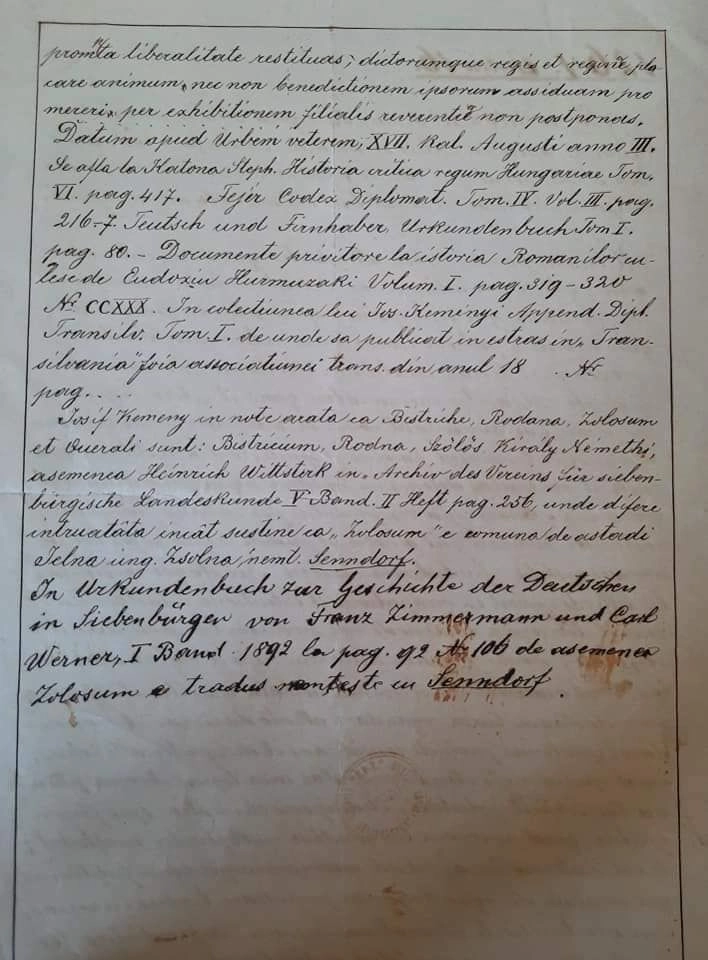 promta liberalitate restituas; dictorumque regis et reginę pla
care animum, nec non benedictionem ipsorum assiduam pro
mereri, per exhibitionem filialis reverentię non postponas.
Datum apud Urbem veterem, XVII. Kal. Augusti anno III.
Se afla la Katona Steph. Historia critica regum Hungariae Tom.
VI. pag. 417. Fejér Codex Diplomat. Tom. IV. Vol. III. pag.
216-7. Teutsch und Firnhaber, Urkundenbuch Tom I.
pag. 80. – Documente privitore la istoria Romanilor cu-
lese de Eudoxiu Hurmuzaki Volum. I. pag. 319-320
Nr. CCXXX. In colectiunea lui Ios. Keminyi Append. Dipl.
Transilv. Tom. I. de unde sa publicat in estras in „Tran-
silvania" foia associatiunei trans. din anul 18 Nr
pag. . . .
Iosif Kemeny in note arata ca Bistriche, Rodana, Zolosum
et Querali sunt: Bistricium, Rodna, Szölös, Király Némethi,
asemenea Heinrich Wittstock in „Archiv des Vereins für sieben-
bürgische Landeskunde V Band. II Heft pag. 256, unde difere
intruatâta incât sustine ca „Zolosum" e comuna de astadi
Jelna ung. Zsolna, nemt. Senndorf.
In Urkundenbuch zur Geschichte der Deutschen
in Siebenbürgen von Franz Zimmermann und Carl
Werner, I Band. 1892 la pag. 92 Nr 106 de asemenea
Zolosum e tradus cu Senndorf.